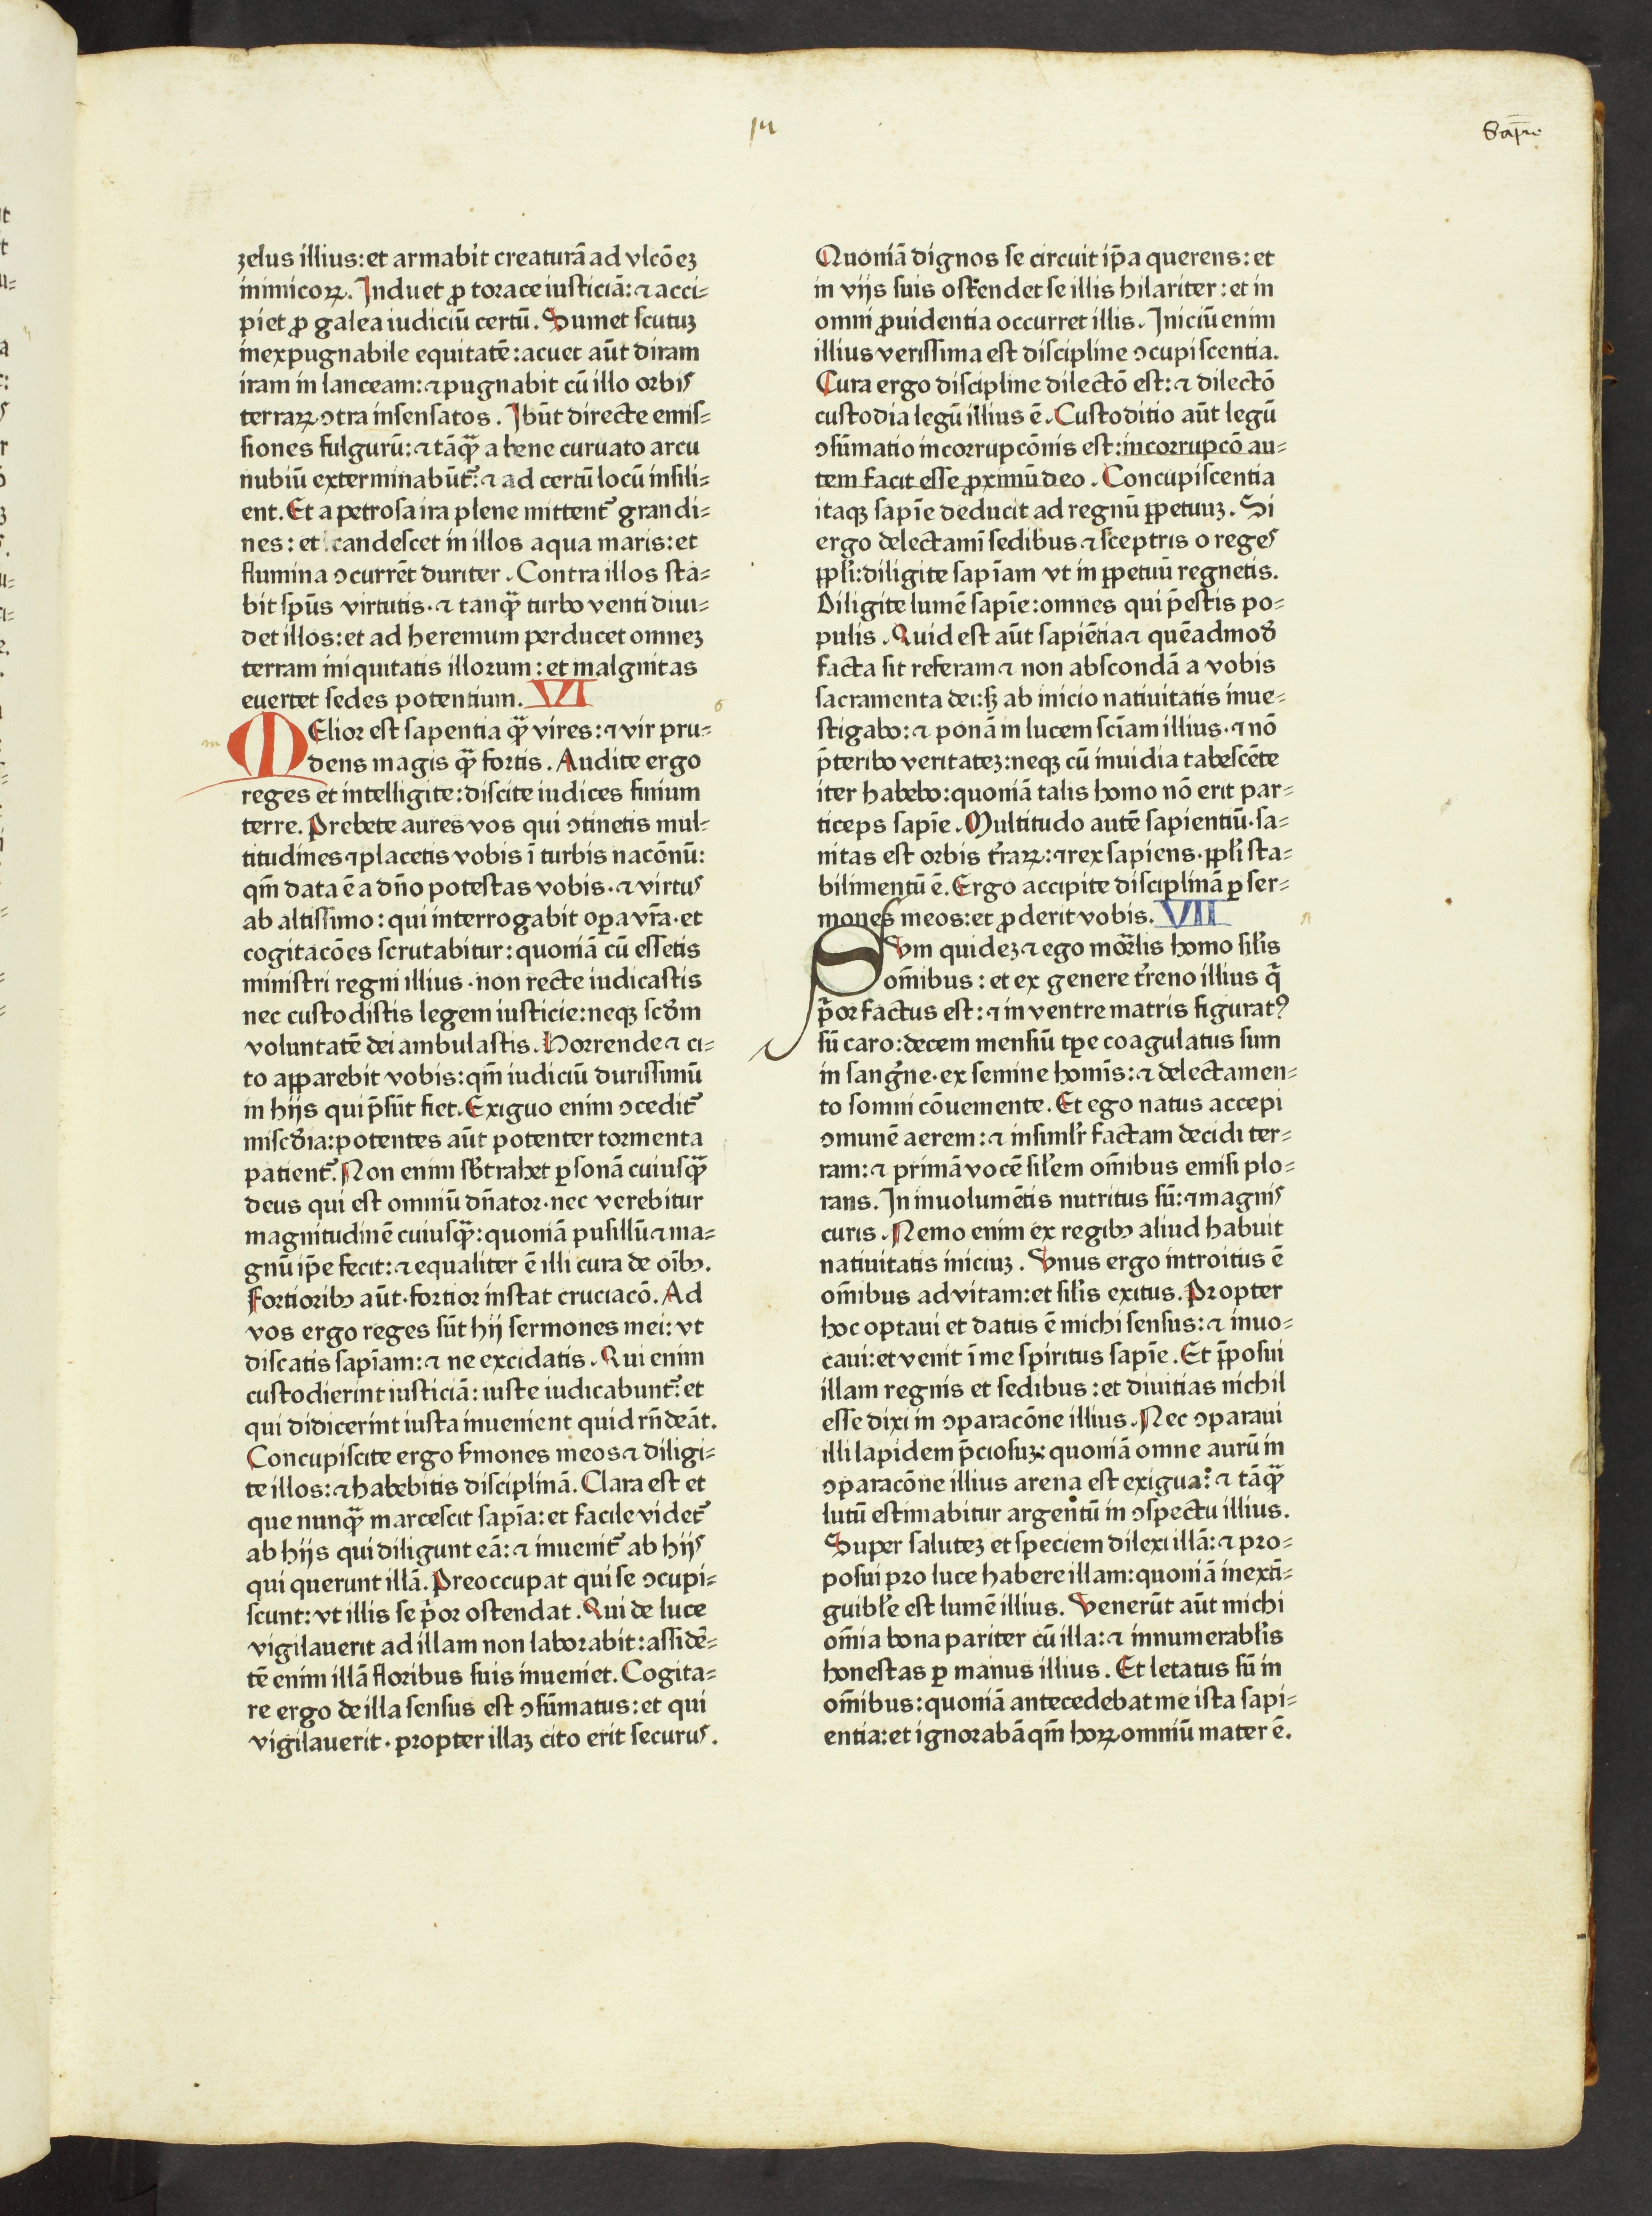 14
Sapie
zelus illius: et armabit creaturā ad vlcōeꝫ
inimicoꝝ. Induet ꝓ torace iusticiā: ⁊ acci⸗
piet ꝓ galea iudiciū certū. Sumet scutuꝫ
inexpugnabile equitatē: acuet aūt diram
iram in lanceam: ⁊ pugnabit cū illo orbis
terraꝝ ↄtra insensatos. Ibūt directe emis⸗
siones fulgurū: ⁊ tāqꝫ̄ a bene curuato arcu
nubiū exterminabūt᷑: ⁊ ad certū locū insili⸗
ent. Et a petrosa ira plene mittent᷑ grandi⸗
nes: et candescet in illos aqua maris: et
flumina ↄcurrēt duriter. Contra illos sta⸗
bit spūs virtutis. ⁊ tanqꝫ̄ turbo venti diui⸗
det illos: et ad heremum perducet omneꝫ
terram iniquitatis illorum: et malgnitas
euertet sedes potentium. VI
m MElior est sapentia qꝫ̄ vires: ⁊ vir pru⸗ 6
dens magis qꝫ̄ fortis. Audite ergo
reges et intelligite: discite iudices finium
terre. Prebete aures vos qui ↄtinetis mul⸗
titudines ⁊ placetis vobis ī turbis nacōnū:
qm̄ data ē a dn̄o potestas vobis. ⁊ virtus
ab altissimo: qui interrogabit oꝑa vr̄a. et
cogitacōes scrutabitur: quoniā cū essetis
ministri regni illius. non recte iudicastis
nec custodistis legem iusticie: neqꝫ scd̄m
voluntatē dei ambulastis. Horrende ⁊ ci⸗
to apꝑarebit vobis: qm̄ iudiciū durissimū
in hijs qui p̄sūt fiet. Exiguo enim ↄcedit᷑
miscd̄ia: potentes aūt potenter tormenta
patient᷑. Non enim sb̄trahet ꝑsonā cuiusqꝫ̄
deus qui est omniū dn̄ator. nec verebitur
magnitudinē cuiusqꝫ̄: quoniā pusillū ⁊ ma⸗
gnū ip̄e fecit: ⁊ equaliter ē illi cura de oībꝰ.
Fortioribꝰ aūt. fortior instat cruciacō. Ad
vos ergo reges sūt hij sermones mei: vt
discatis sapīam: ⁊ ne excidatis. Qui enim
custodierint iusticiā: iuste iudicabunt᷑: et
qui didicerint iusta inuenient quid rn̄deāt.
Concupiscite ergo ẜmones meos ⁊ diligi⸗
te illos: ⁊ habebitis disciplinā. Clara est et
que nunqꝫ̄ marcescit sapīa: et facile videt᷑
ab hijs qui diligunt eā: ⁊ inuenit᷑ ab hijs
qui querunt illā. Preoccupat qui se ↄcupi⸗
scunt: vt illis se p̄or ostendat. Qui de luce
vigilauerit ad illam non laborabit: assidē⸗
tē enim illā floribus suis inueniet. Cogita⸗
re ergo de illa sensus est ↄsūmatus: et qui
vigilauerit. propter illaꝫ cito erit securus.
Quoniā dignos se circuit ip̄a querens: et
in vijs suis ostendet se illis hilariter: et in
omni ꝓuidentia occurret illis. Iniciū enim
illius verissima est discipline ↄcupiscentia.
Cura ergo discipline dilectō est: ⁊ dilectō
custodia legū illius ē. Custoditio aūt legū
ↄsūmatio incorrupcōnis est: incorrupcō au⸗
tem facit esse ꝓximū deo. Concupiscentia
itaqꝫ sapīe deducit ad regnū ꝑpetuuꝫ. Si
ergo delectamī sedibus ⁊ sceptris o reges
ppl̄i: diligite sapīam vt in ꝑpetuū regnetis.
Diligite lumē sapīe: omnes qui p̄estis po⸗
pulis. Quid est aūt sapiētia ⁊ quēadmod̄
facta sit referam ⁊ non abscondā a vobis
sacramenta dei: sꝫ ab inicio natiuitatis inue⸗
stigabo: ⁊ ponā in lucem scīam illius. ⁊ nō
p̄teribo veritateꝫ: neqꝫ cū inuidia tabescēte
iter habebo: quoniā talis homo nō erit par⸗
ticeps sapīe. Multitudo autē sapientiū. sa⸗
nitas est orbis t̄raꝝ: ⁊ rex sapiens. ppl̄i sta⸗
bilimentū ē. Ergo accipite disciplinā ꝑ ser⸗
mones meos: et ꝓderit vobis. VII
SVm quideꝫ ⁊ ego mōrlis homo sil̄is
om̄ibus: et ex genere t̄reno illius q̄
p̄or factus est: ⁊ in ventre matris figuratꝰ
sū caro: decem mensiū tꝑe coagulatus sum
in sanḡne. ex semine homīs: ⁊ delectamen⸗
to somni cōueniente. Et ego natus accepi
ↄmunē aerem: ⁊ insimil̄r factam decidi ter⸗
ram: ⁊ primā vocē sil̄em om̄ibus emisi plo⸗
rans. In inuolumētis nutritus sū: ⁊ magnis
curis. Nemo enim ex regibꝰ aliud habuit
natiuitatis iniciuꝫ. Vnus ergo introitus ē
om̄ibus ad vitam: et sil̄is exitus. Propter
hoc optaui et datus ē michi sensus: ⁊ inuo⸗
caui: et venit ī me spiritus sapīe. Et p̄posui
illam regnis et sedibus: et diuitias nichil
esse dixi in ↄparacōne illius. Nec ↄparaui
illi lapidem p̄ciosuꝫ: quoniā omne aurū in
ↄparacōne illius arena est exigua: ⁊ tāqꝫ̄
lutū estimabitur argentū in ↄspectu illius.
Super saluteꝫ et speciem dilexi illā: ⁊ pro⸗
posui pro luce habere illam: quoniā inextī⸗
guibl̄e est lumē illius. Venerūt aūt michi
om̄ia bona pariter cū illa: ⁊ innumerabl̄is
honestas ꝑ manus illius. Et letatus sū in
om̄ibus: quoniā antecedebat me ista sapi⸗
entia: et ignorabā qm̄ hoꝝ omniū mater ē.